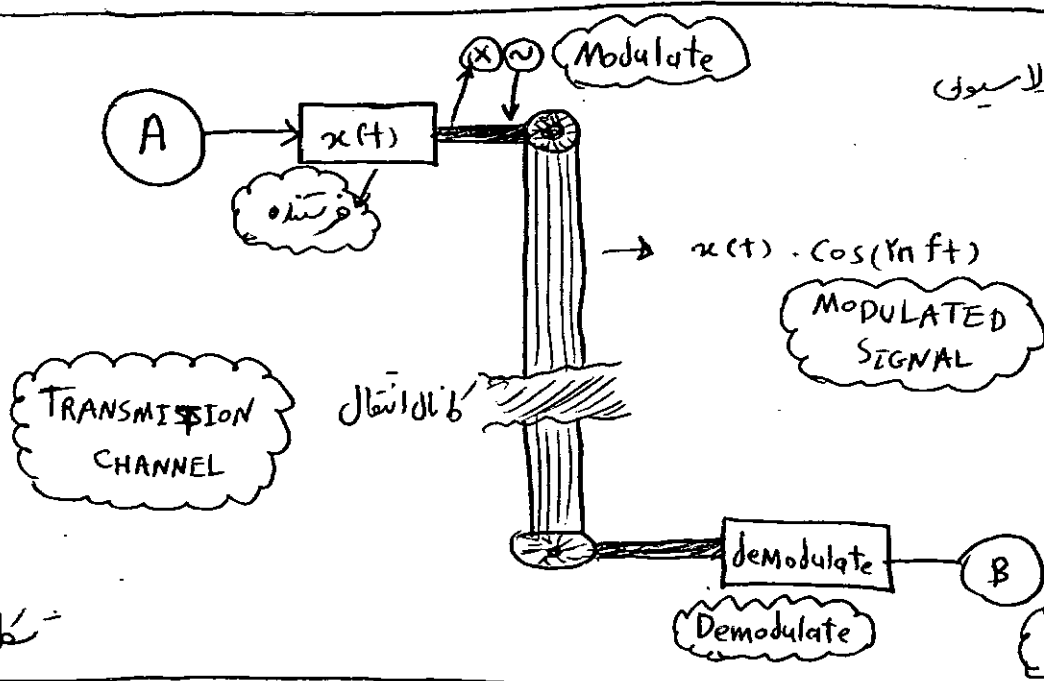 Modulate
A
x(t)
فرستنده
x(t) . Cos(2π ft)
MODULATED
SIGNAL
TRANSMISSION
CHANNEL
کانال انتقال
demodulate
B
Demodulate